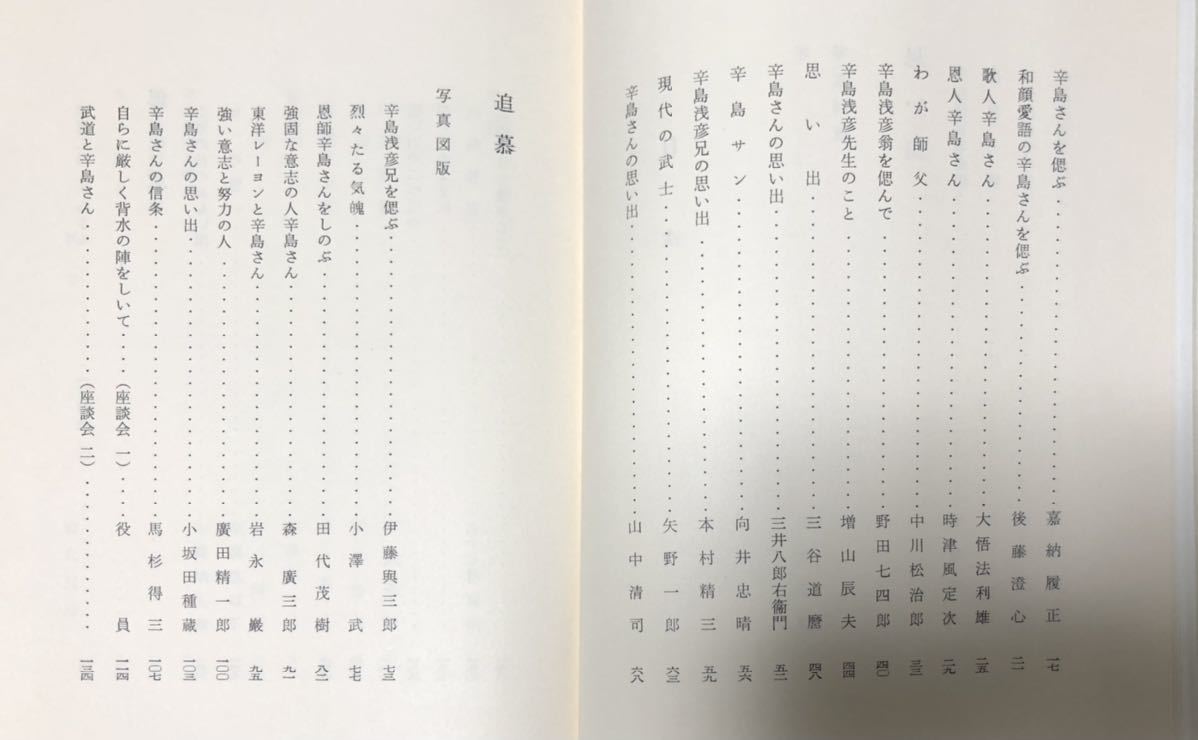 辛島さんを偲ぶ……………………嘉納履正 一七
和顔愛語の辛島さんを偲ぶ……………………後藤澄心 二一
歌人辛島さん……………………大悟法利雄 二五
恩人辛島さん……………………時津風定次 二九
わが師父……………………中川松治郎 三三
辛島浅彦翁を偲んで……………………野田七四郎 四〇
辛島浅彦先生のこと……………………増山辰夫 四四
思い出……………………三谷道麿 四八
辛島さんの思い出……………………三井八郎右衞門 五二
辛島サン……………………向井忠晴 五六
辛島浅彦兄の思い出……………………本村精三 五九
現代の武士……………………矢野一郎 六三
辛島さんの思い出……………………山中清司 六八
追慕
写真図版
辛島浅彦兄を偲ぶ……………………伊藤與三郎 七三
烈々たる気魄……………………小澤武 七七
恩師辛島さんをしのぶ……………………田代茂樹 八二
強固な意志の人辛島さん……………………森廣三郎 九一
東洋レーヨンと辛島さん……………………岩永巌 九五
強い意志と努力の人……………………廣田精一郎 一〇〇
辛島さんの思い出……………………小坂田種蔵 一〇三
辛島さんの信条……………………馬杉得三 一〇七
自らに厳しく背水の陣をしいて……(座談会 一)……役員 一一四
武道と辛島さん……………………(座談会 二)…………… 一三四